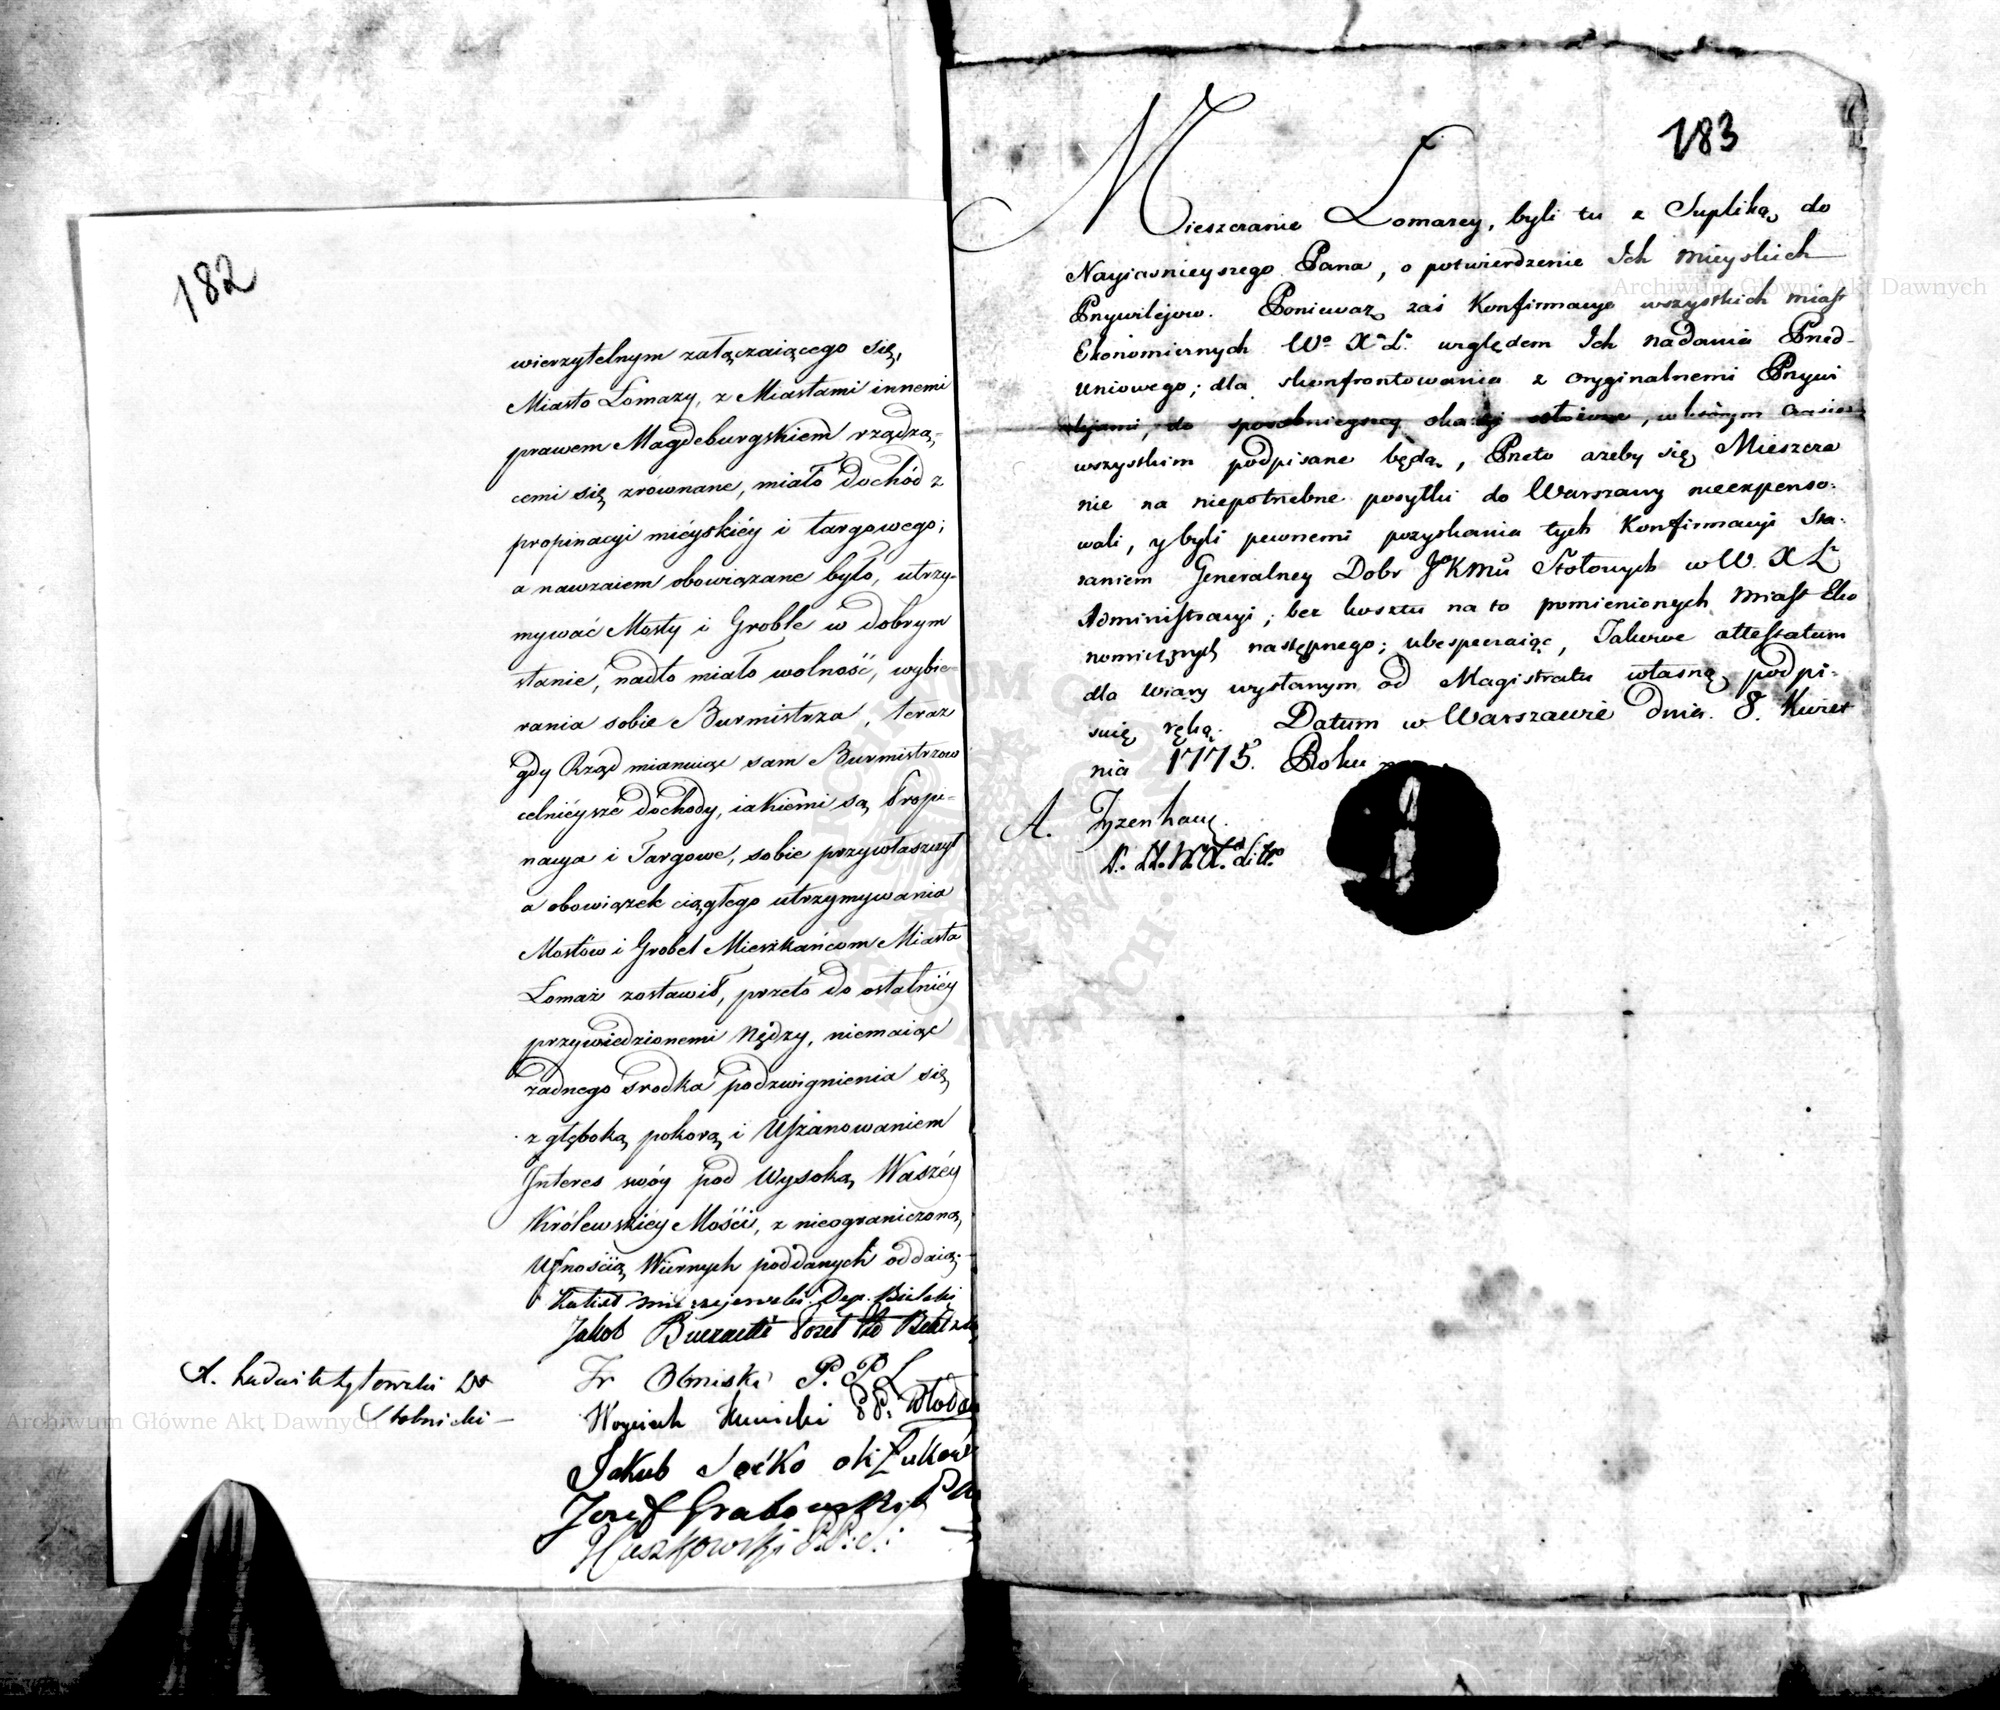 182
wierzytelnym załączaiącego się,
Miasto Łomazy, z Miastami innemi
prawem Magdeburgskiem rządzą-
cemi się zrównane, miało dochód z
propinacyi miéyskiéy i targowego;
a nawzaiem obowiązane było, utrzy-
mywać Mosty i Groble w dobrym
stanie, nadto miało wolność, wybie-
rania sobie Burmistrza, teraz
gdy Rząd mianuiąc sam Burmistrzow
celniéysze dochody, iakiemi są Propi-
nacya i Targowe, sobie przywłaszczył
a obowiązek ciągłego utrzymywania
Mostów i Grobel Mieszkańcom Miasta
Łomaz zostawił, przeto do ostatniéy
przywiedzionemi Nędzy, niemaiąc
żadnego srodka podzwignienia się
z głęboką pokorą i Uszanowaniem
Interes swóy pod Wysoką Waszéy
Królewskiéy Mości, z nieograniczoną
Ufnością Wiernych poddanych oddaią.
Dep. Bielski
Jakob
Fr Obniski P. P Ł
Woyciech Kunicki PP. Włoda
Jakub Soćko
Jozef Grabowski
Huszkowski
A. Ludwik
Stolnicki
183
Mieszczanie Łomazcy, byli tu z Supliką do
Nayiasnieyszego Pana, o potwierdzenie Ich Mieyskich
Przywilejow. Poniewaz zaś Konfirmacye wszystkich Miast
Ekonomicznych Wo Xa Lo względem Ich nadania Przed-
Uniowego; dla skonfrontowania z oryginalnemi Przywi
lejami, do sposobnieyszey okazyi odłożone, w ktorym czasie
wszystkim podpisane będą, Przeto azeby się Mieszcza
nie na niepotrzebne posyłki do Warszawy nieexpenso-
wali, y byli pewnemi pozyskania tych Konfirmacyi sta-
raniem Generalney Dobr JKMci Stołowych w W. X L
Administracyi; bez kosztu na to pomienionych Miast Eko
nomicznych następnego; ubespieczaiąc, Takowe attestatum
dla wiary wysłanym od Magistratu własną podpi-
suię ręką. Datum w Warszawie dnia 8. Kwiet
nia 1775. Roku
A. Tyzenhauz
Archiwum Główne Akt Dawnych
Archiwum Główne Akt Dawnych